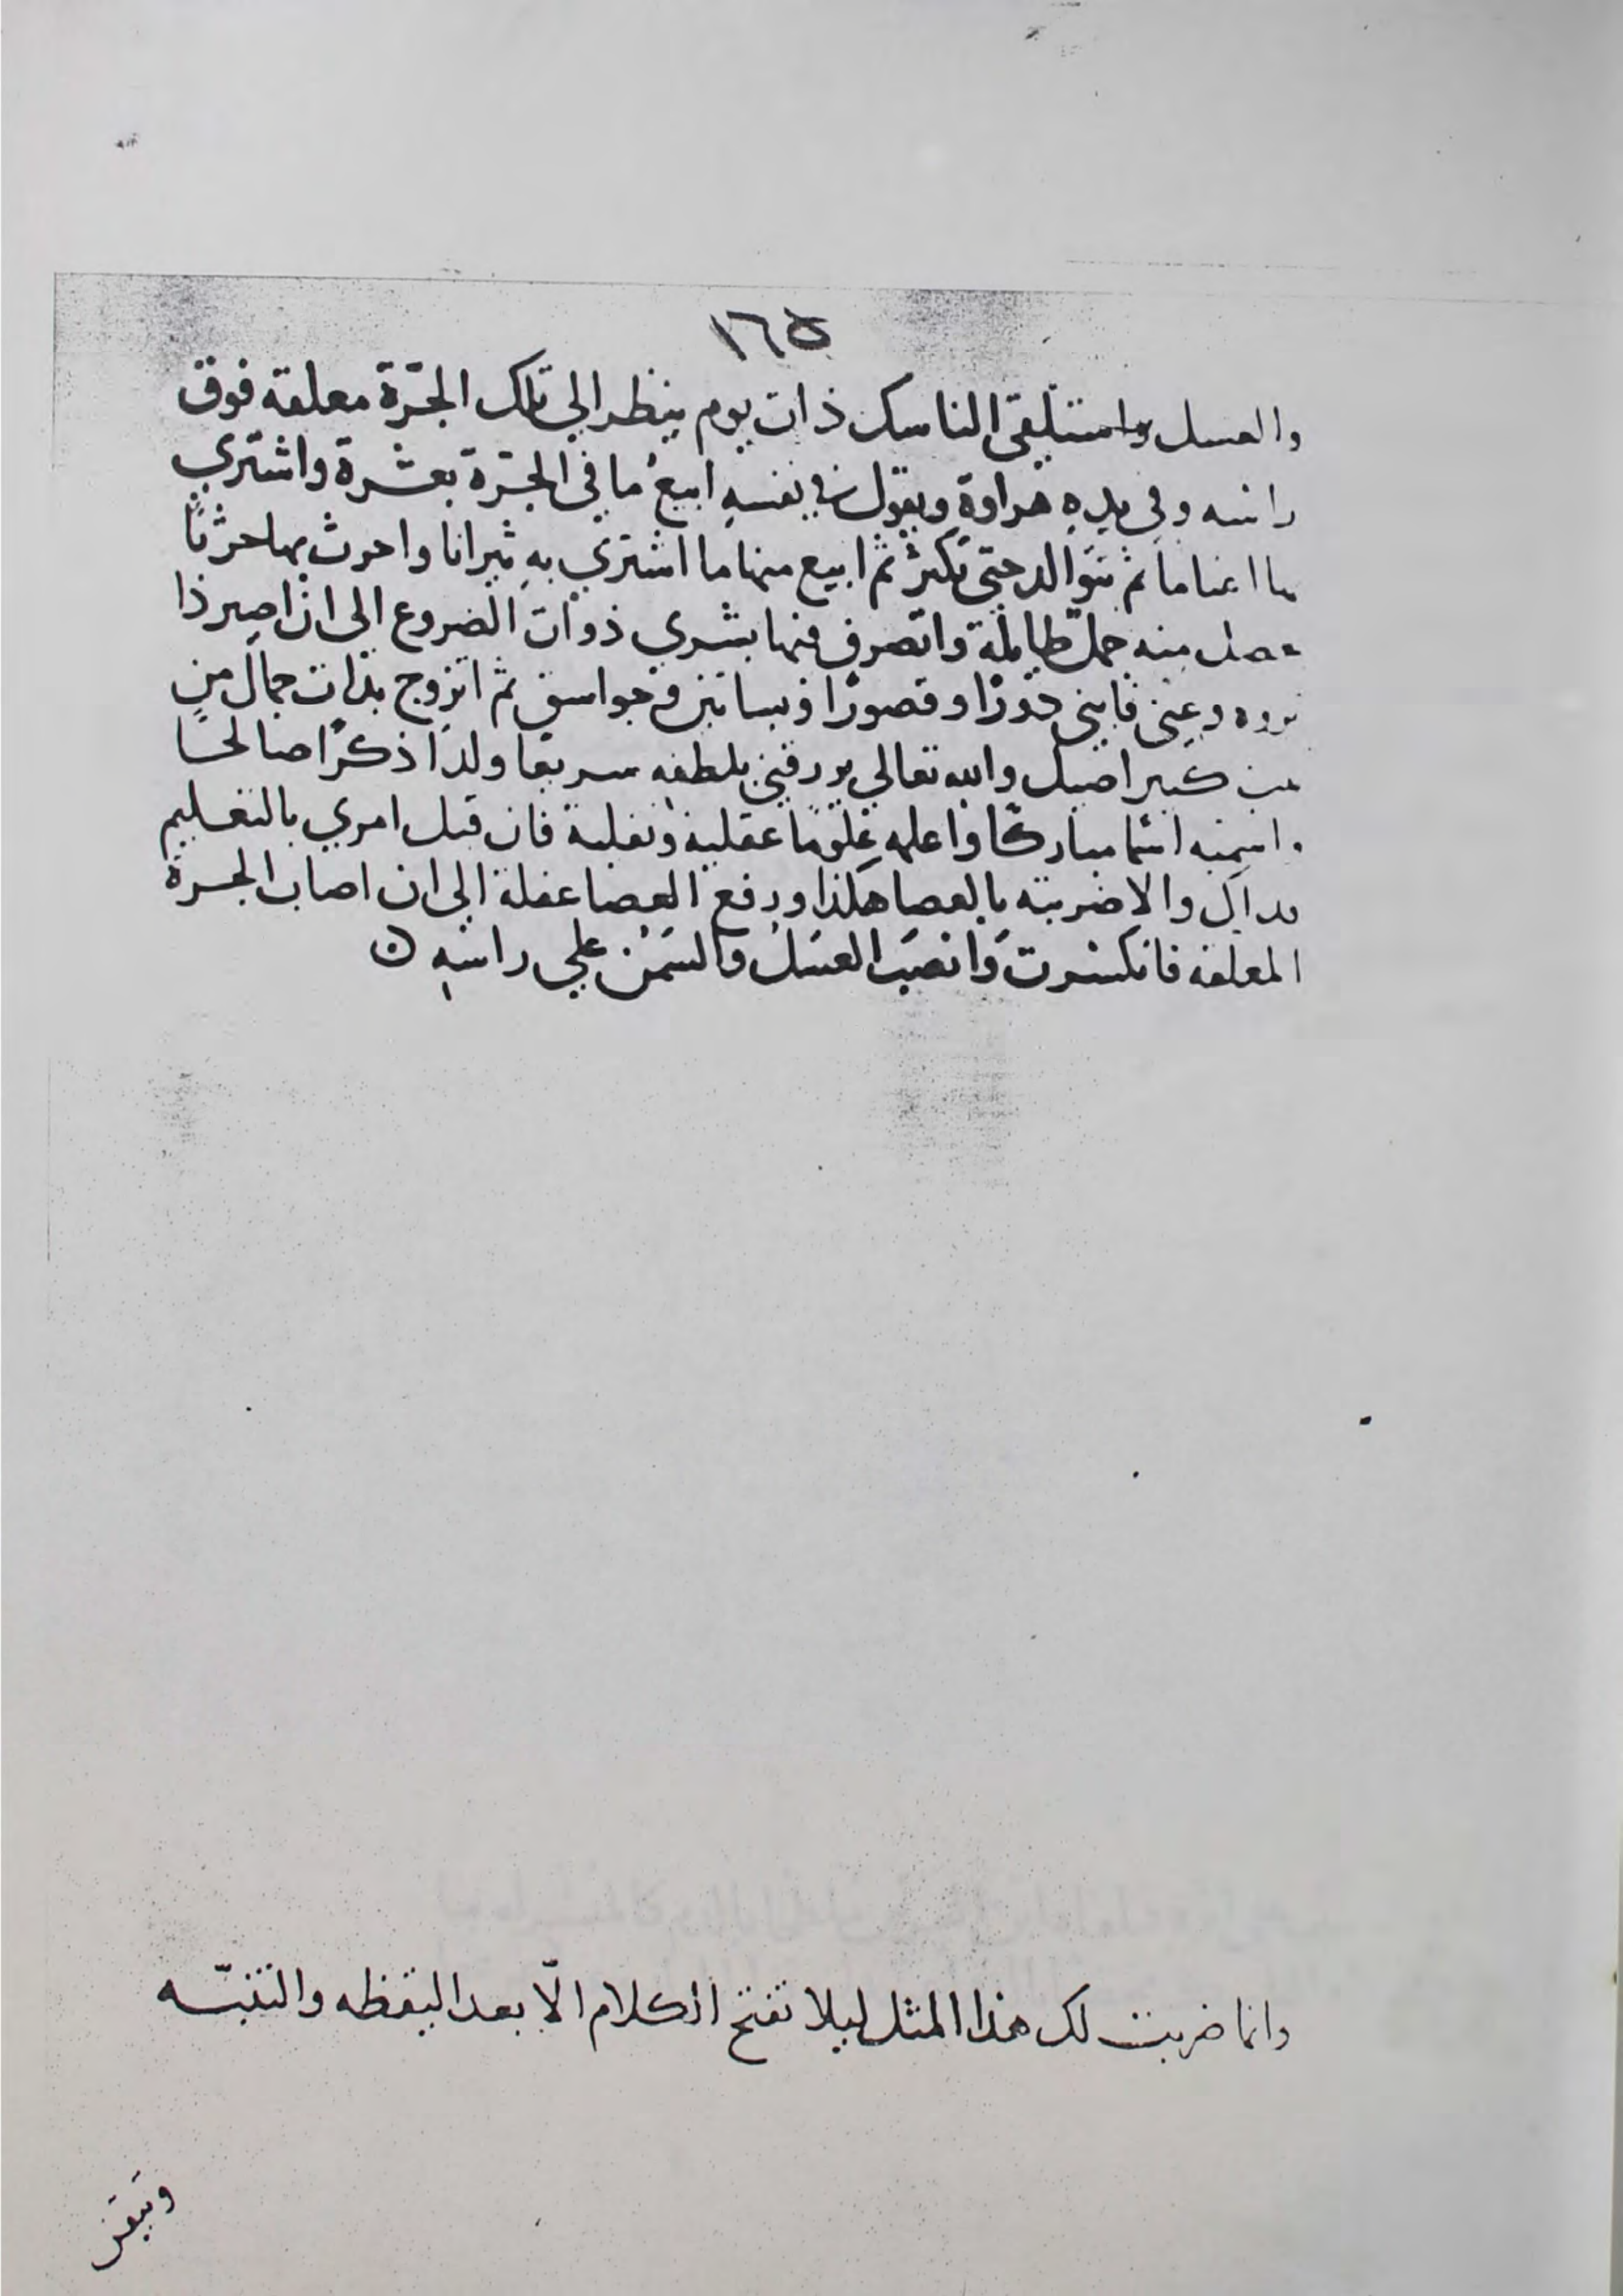 ١٦٥
والعسل واستلقى الناسك ذات يوم ينظر الي تلك الجرّة معلقه فوق
راسه وفي يدِهِ هراوةٍ ويقول في نفسهِ ابيعُ ما في الجرّة بعشرة واشتري
اغناما ثم تتوالد حتي تكثرُ ثم ابيع منها ما اشتري بهِ ثيرانا واحرث بها حرثًا
منه جملة طايلة واتصرف منها بشري ذوات الضروع الى ان اصير ذا
وغنى فابني دورًا وقصورًا وبساتين وجواسق ثم اتزوج بذات جمال من
كبير اصيل والله تعالي يورقني بلطفهِ سريعا ولدًا ذكرًا صالحًا
واسميه اسمًا مباركًا واعلمه علومًا عقلية ونقلية فان قبل امري بالتعليم
فداك والا ضربته بالعصا هكذا ورفع العصا غفلة الى ان اصاب الجرة
المعلقه فانكسرت وَانصَبَ العسَلُ والسَمنُ علي راسهِ ن
وانما ضربت لك هذا المثل ليلا تفتح الكلام الّا بعد اليقظه والتنبّه